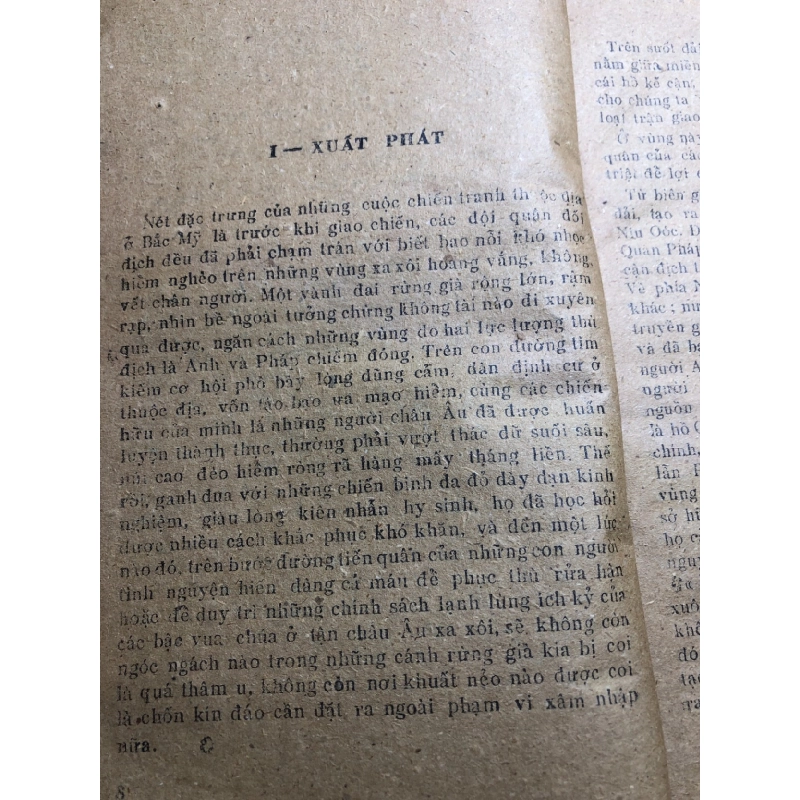 I — XUẤT PHÁT
Nét đặc trưng của những cuộc chiến tranh thuộc địa
ở Bắc Mỹ là trước khi giao chiến, các đội quân đối
địch đều đã phải chạm trán với biết bao nỗi khó nhọc
hiểm nghèo trên những vùng xa xôi hoang vắng, không
vết chân người. Một vành đai rừng già rộng lớn, rậm
rạp, nhìn bề ngoài tưởng chừng không tài nào đi xuyên
qua được, ngăn cách những vùng do hai lực lượng thù
địch là Anh và Pháp chiếm đóng. Trên con đường tìm
kiếm cơ hội phô bày lòng dũng cảm, dân định cư ở
thuộc địa, vốn táo bạo ưa mạo hiểm, cùng các chiến
hữu của mình là những người châu Âu đã được huấn
luyện thành thục, thường phải vượt thác dữ suối sâu,
núi cao đèo hiểm ròng rã hàng mấy tháng liền. Thế
rồi, ganh đua với những chiến binh da đỏ dày dạn kinh
nghiệm, giàu lòng kiên nhẫn hy sinh, họ đã học hỏi
được nhiều cách khác phục khó khăn, và đến một lúc
nào đó, trên bước đường tiến quân của những con người
tình nguyện hiến dâng cả máu để phục thù rửa hận
hoặc để duy trì những chính sách lạnh lùng ích kỷ của
các bậc vua chúa ở tận châu Âu xa xôi, sẽ không còn
ngóc ngách nào trong những cánh rừng già kia bị coi
là quá thâm u, không còn nơi khuất nẻo nào được coi
là chốn kín đáo cần đặt ra ngoài phạm vi xâm nhập
nữa.
8
Trên suốt
nằm giữa miền
cái hồ kế cận,
cho chúng ta
loạt trận giao
Ở vùng này
quân của các
triệt để lợi
Từ biên
dài, tạo ra
Niu Oóc.
Quân Pháp
cận địch
Về phía
khác;
truyền
và đã
người
người
nguồn
là hồ
chính,
lần
vùng
sở
họ